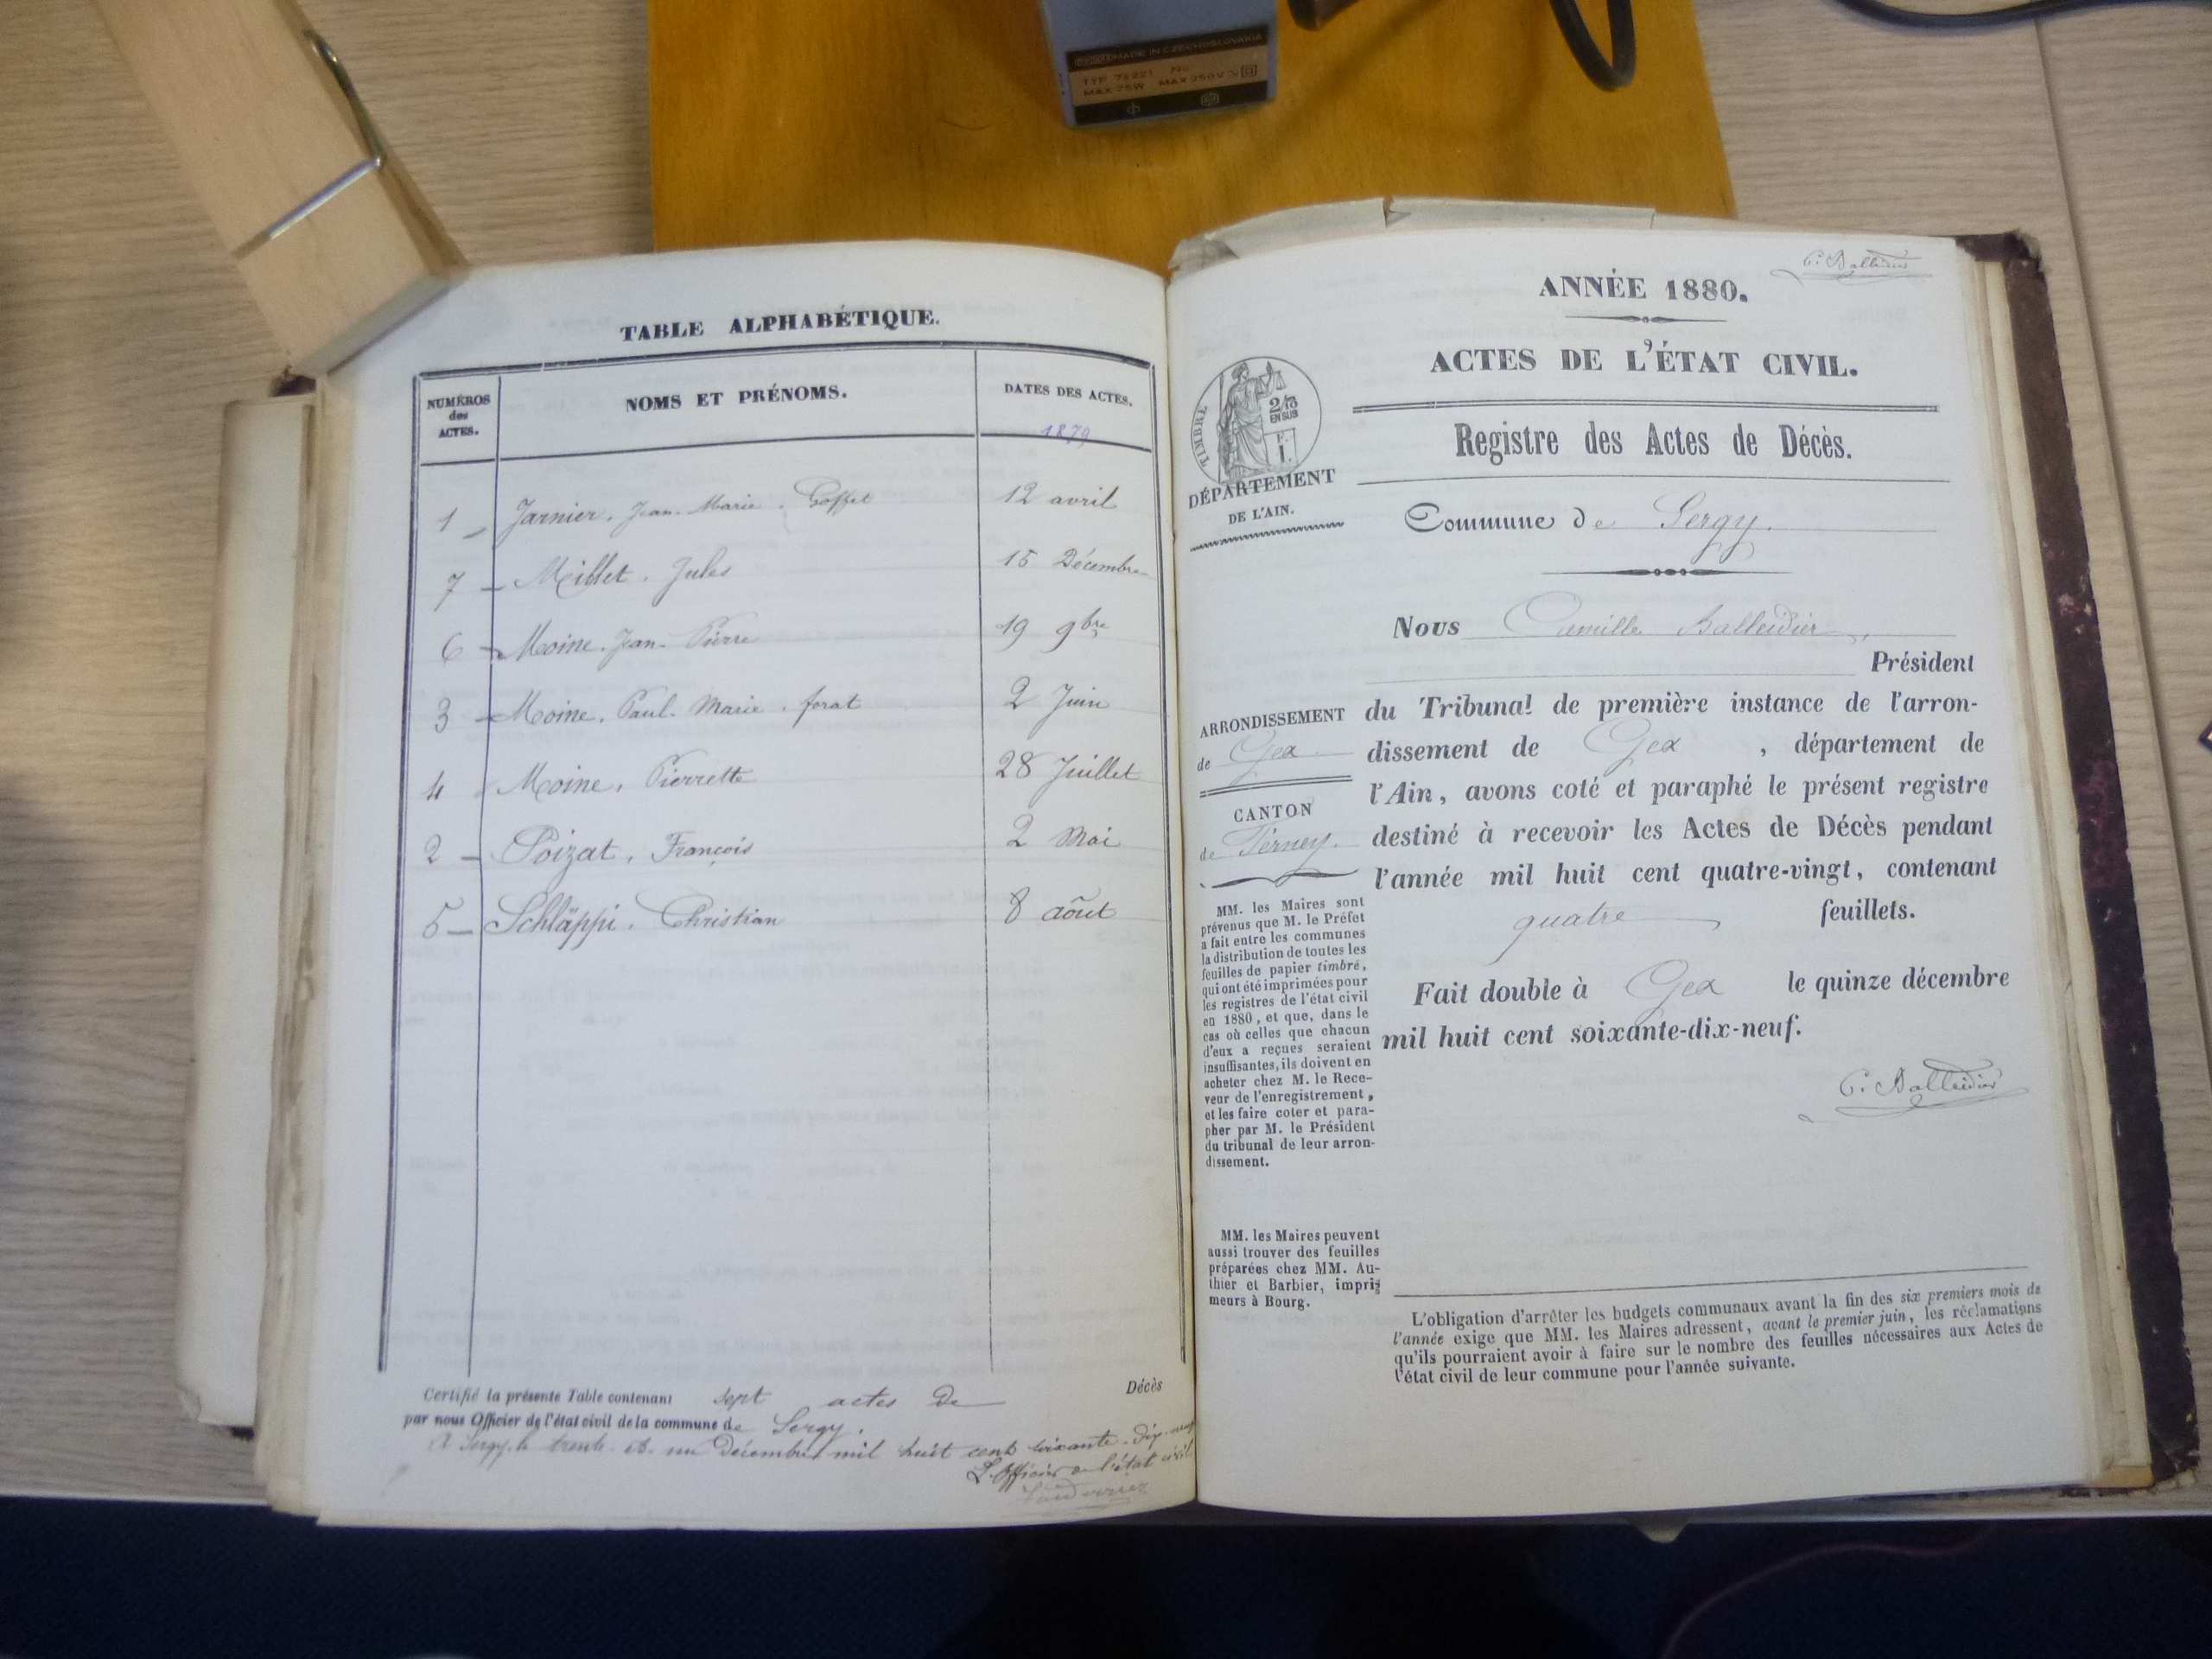 MADE IN CZECHOSLOVAKIA
TYP 72221 No
MAX 75W MAX 250V
TABLE ALPHABÉTIQUE.
NUMÉROS
des
ACTES.
NOMS ET PRÉNOMS.
DATES DES ACTES.
1879
1 Jarnier. Jean-Marie. Goffet 12 avril
7 Millet. Jules 15 Décembre
6 Moine. Jean-Pierre 19 9bre
3 Moine. Paul-Marie. forat 2 Juin
4 Moine. Pierrette 28 Juillet
2 Poizat. François 2 Mai
5 Schläppi. Christian 8 août
Certifié la présente Table contenant sept actes de Décès
par nous Officier de l'état civil de la commune de Sergy.
A Sergy, le trente et un Décembre mil huit cent soixante-dix-neuf
L'officier de l'état civil
C. Balleidier
ANNÉE 1880.
ACTES DE L'ÉTAT CIVIL.
TIMBRE
2/10
EN SUS
DÉPARTEMENT
DE L'AIN.
Registre des Actes de Décès.
Commune de Sergy.
Nous Camille Balleidier,
Président
du Tribunal de première instance de l'arron-
dissement de Gex, département de
l'Ain, avons coté et paraphé le présent registre
destiné à recevoir les Actes de Décès pendant
l'année mil huit cent quatre-vingt, contenant
quatre feuillets.
Fait double à Gex le quinze décembre
mil huit cent soixante-dix-neuf.
C. Balleidier
ARRONDISSEMENT
de Gex
CANTON
de Ferney.
MM. les Maires sont
prévenus que M. le Préfet
a fait entre les communes
la distribution de toutes les
feuilles de papier timbré,
qui ont été imprimées pour
les registres de l'état civil
en 1880, et que, dans le
cas où celles que chacun
d'eux a reçues seraient
insuffisantes, ils doivent en
acheter chez M. le Rece-
veur de l'enregistrement,
et les faire coter et para-
pher par M. le Président
du tribunal de leur arron-
dissement.
MM. les Maires peuvent
aussi trouver des feuilles
préparées chez MM. Au-
thier et Barbier, impri-
meurs à Bourg.
L'obligation d'arrêter les budgets communaux avant la fin des six premiers mois de
l'année exige que MM. les Maires adressent, avant le premier juin, les réclamations
qu'ils pourraient avoir à faire sur le nombre des feuilles nécessaires aux Actes de
l'état civil de leur commune pour l'année suivante.